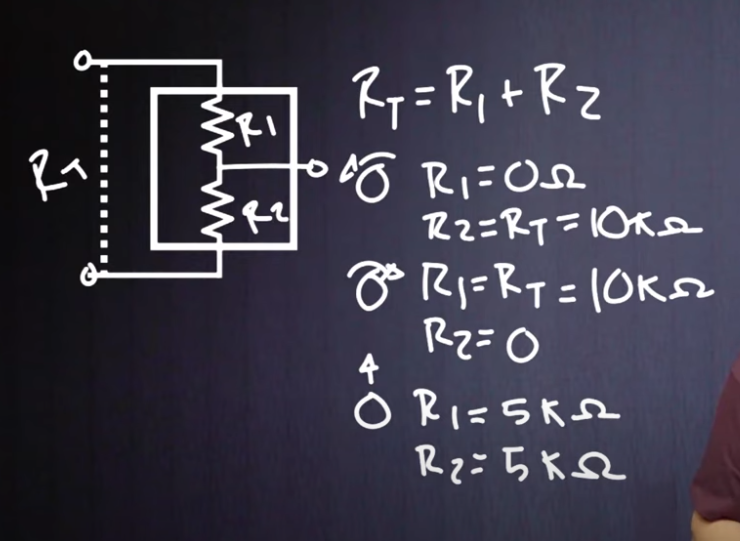 RT
R1
R2
RT = R1 + R2
R1 = 0Ω
R2 = RT = 10KΩ
R1 = RT = 10KΩ
R2 = 0
R1 = 5KΩ
R2 = 5KΩ